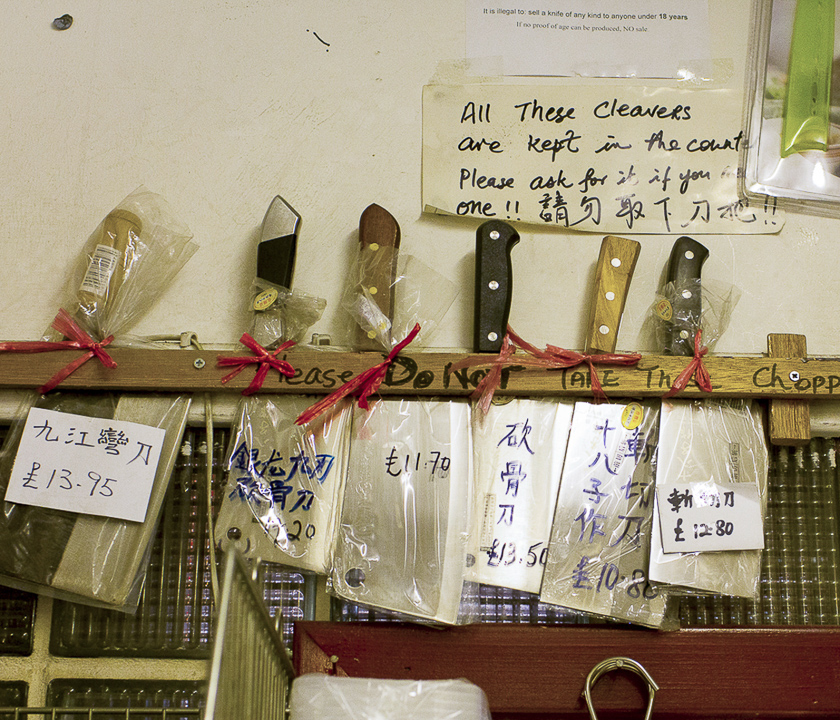 It is illegal to: sell a knife of any kind to anyone under 18 years
If no proof of age can be produced, NO sale.
All These Cleavers
are kept in the counte
Please ask for it if you
one!! 請勿取下刀把!!
Please Do Not TAKE These Chopp
九江彎刀
£13.95
銀龙九刃
砍骨刀
.20
£11.70
砍骨刀
£13.50
斬切刀
十八子作
£10.80
斬切刀
£12.80